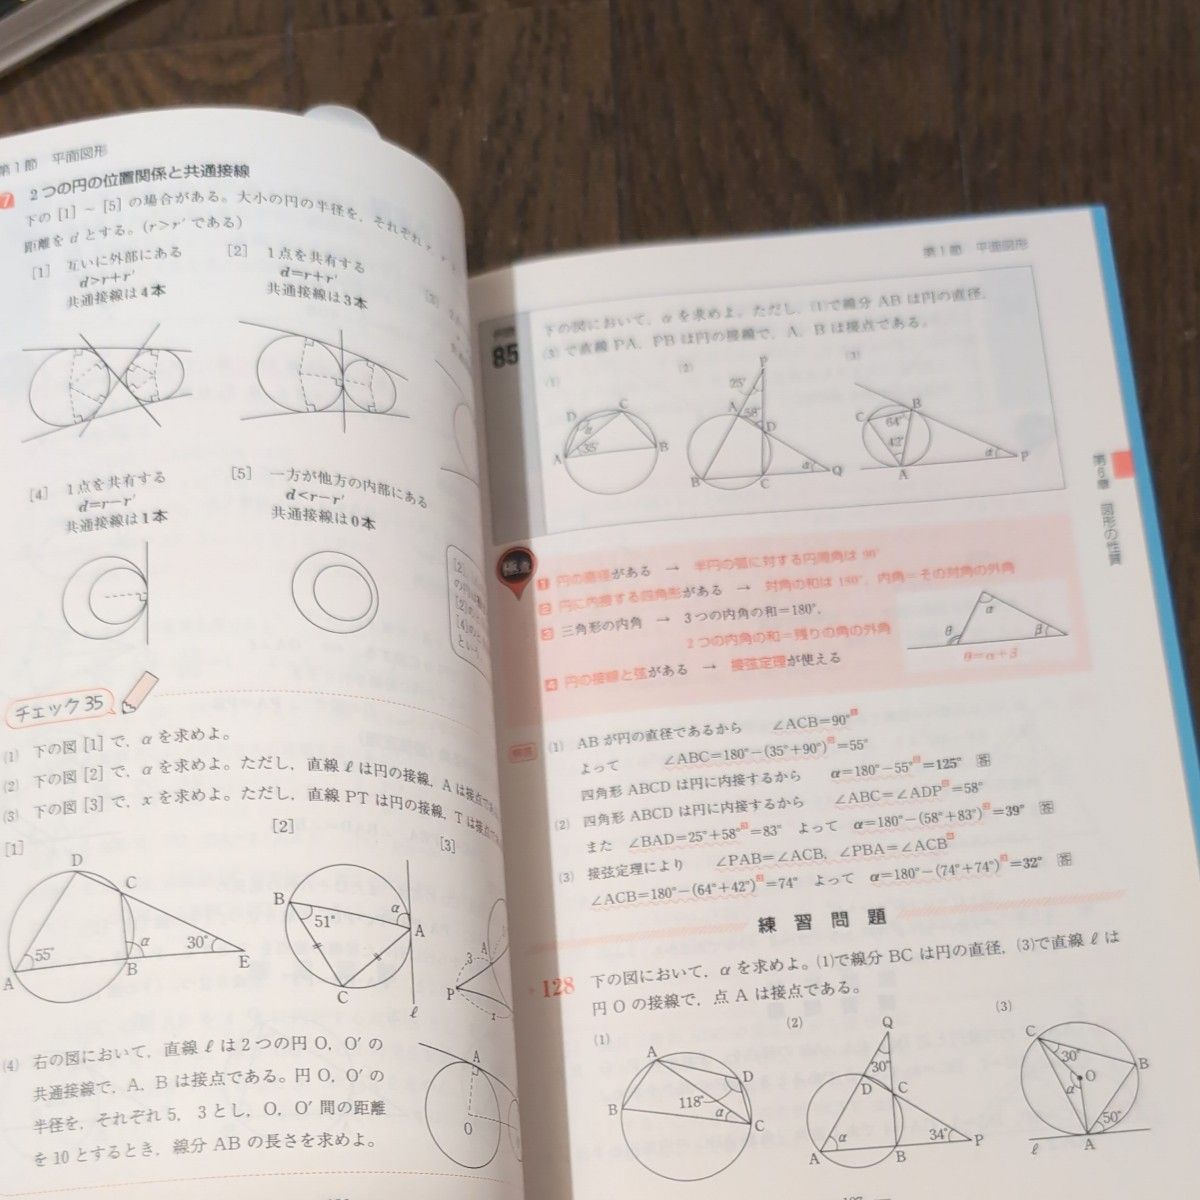 第1節 平面図形
7 2つの円の位置関係と共通接線
下の [1] ~ [5] の場合がある。大小の円の半径を, それぞれ r,
距離を d とする。(r>r' である)
[1] 互いに外部にある
d>r+r'
共通接線は4本
[2] 1点を共有する
d=r+r'
共通接線は3本
[4] 1点を共有する
d=r−r'
共通接線は1本
[5] 一方が他方の内部にある
d<r−r'
共通接線は0本
チェック35
(1) 下の図 [1] で, αを求めよ。
(2) 下の図 [2] で, αを求めよ。ただし, 直線 ℓ は円の接線, A は接点
(3) 下の図 [3] で, x を求めよ。ただし, 直線 PT は円の接線, T は接点
[1]
D
C
55°
α
30°
A
B
E
[2]
B
51°
α
A
C
ℓ
[3]
3
A
P
x
(4) 右の図において, 直線 ℓ は2つの円 O, O' の
共通接線で, A, B は接点である。円 O, O' の
半径を, それぞれ 5, 3 とし, O, O' 間の距離
を 10 とするとき, 線分 AB の長さを求めよ。
A
O
第1節 平面図形
85
下の図において, αを求めよ。ただし, (1)で線分 AB は円の直径,
(3)で直線 PA, PB は円の接線で, A, B は接点である。
(1)
D
C
α
35°
A
B
(2)
P
25°
A
58°
D
α
Q
B
C
(3)
C
B
64°
42°
α
P
A
第6章 図形の性質
極意
1 円の直径がある → 半円の弧に対する円周角は 90°
2 円に内接する四角形がある → 対角の和は 180°, 内角=その対角の外角
3 三角形の内角 → 3つの内角の和=180°,
2つの内角の和=残りの角の外角
4 円の接線と弦がある → 接弦定理が使える
α
θ
β
θ=α+β
解答
(1) AB が円の直径であるから ∠ACB=90°
よって ∠ABC=180°−(35°+90°)=55°
四角形 ABCD は円に内接するから α=180°−55°=125° 答
(2) 四角形 ABCD は円に内接するから ∠ABC=∠ADP=58°
また ∠BAD=25°+58°=83° よって α=180°−(58°+83°)=39° 答
(3) 接弦定理により ∠PAB=∠ACB, ∠PBA=∠ACB
∠ACB=180°−(64°+42°)=74° よって α=180°−(74°+74°)=32° 答
練習問題
128 下の図において, αを求めよ。(1)で線分 BC は円の直径, (3)で直線 ℓ は
円 O の接線で, 点 A は接点である。
(1)
A
D
118°
B
α
C
(2)
Q
30°
D
C
α
34°
P
A
B
(3)
C
30°
B
O
α
50°
ℓ
A